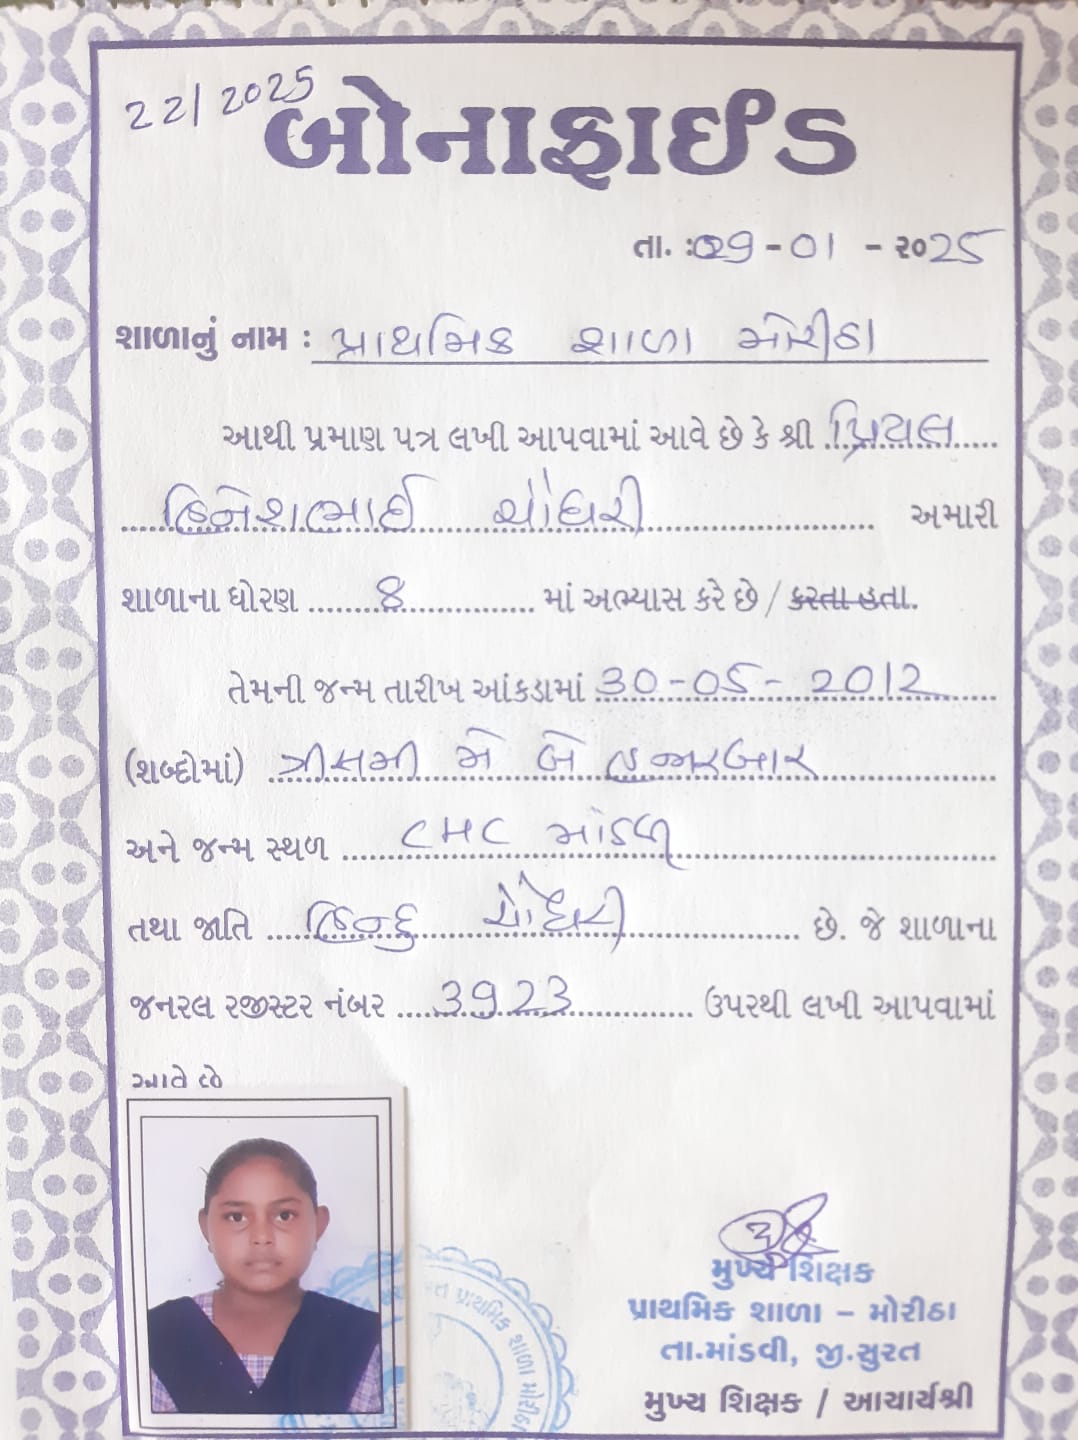 22/2025
બોનાફાઈડ
તા. : 29-01-૨૦25
શાળાનું નામ : પ્રાથમિક શાળા મોરીઠા
આથી પ્રમાણ પત્ર લખી આપવામાં આવે છે કે શ્રી પ્રિયલ
હિનેશભાઈ ચૌધરી અમારી
શાળાના ધોરણ ૪ માં અભ્યાસ કરે છે / કરતા હતા.
તેમની જન્મ તારીખ આંકડામાં 30-05-2012
(શબ્દોમાં) ત્રીસમી મે બે હજારબાર
અને જન્મ સ્થળ CHC
તથા જાતિ હિન્દુ ચૌધરી છે. જે શાળાના
જનરલ રજીસ્ટર નંબર 3923 ઉપરથી લખી આપવામાં
આવે છે
પ્રાથમિક શાળા મોરીઠા
મુખ્ય શિક્ષક
પ્રાથમિક શાળા – મોરીઠા
તા.માંડવી, જી.સુરત
મુખ્ય શિક્ષક / આચાર્યશ્રી